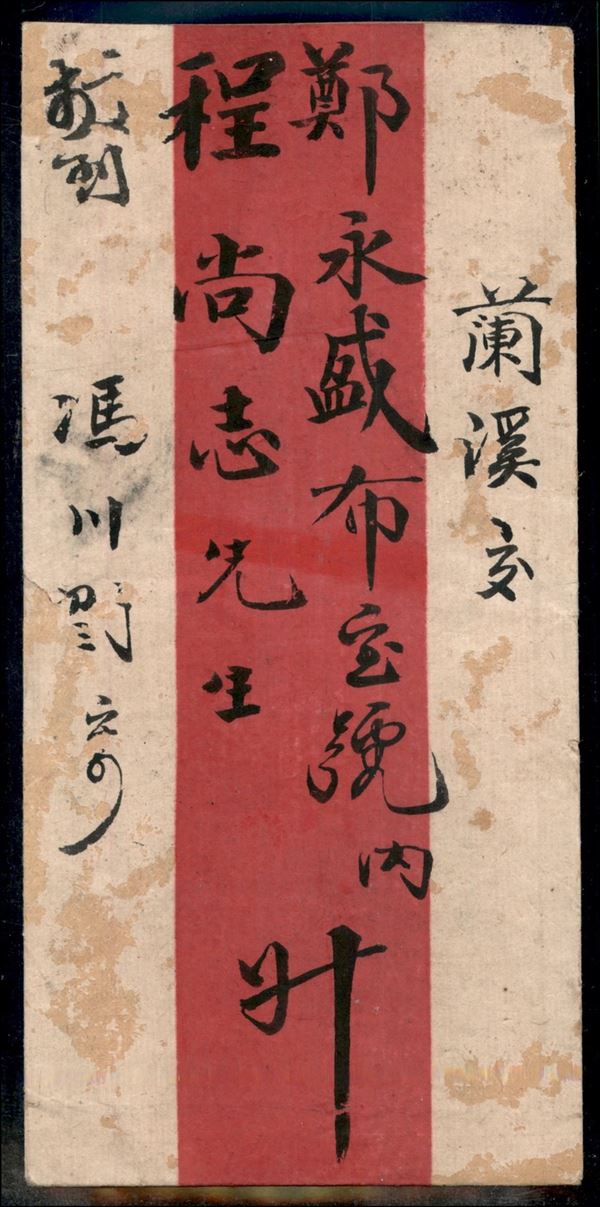 蘭溪交
鄭永盛布宝號内
程尚志先生 升
馮川